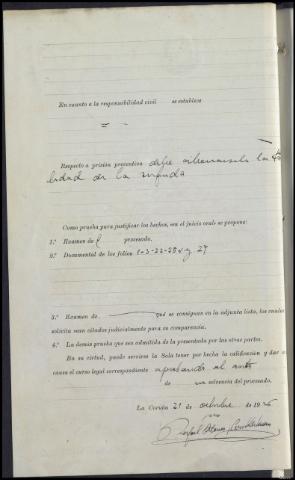 En cuanto a la responsabilidad civil se establece
Respecto a prisión preventiva debe
de la
Como prueba para justificar los hechos, en el juicio oral se propone:
1.º Examen de l procesado.
2.º Documental de los folios 1-3-22- y 27
3.º Examen de que se consignan en la adjunta lista, los cuales
solicita sean citados judicialmente para su comparencia.
4.º La demás prueba que sea admitida de la presentada por las otras partes.
En su virtud, puede servirse la Sala tener por hecha la calificación y dar a
causa el curso legal correspondiente aprobando el auto
de in solvencia del procesado.
La Coruña 21 de octubre de 1936
Rafael